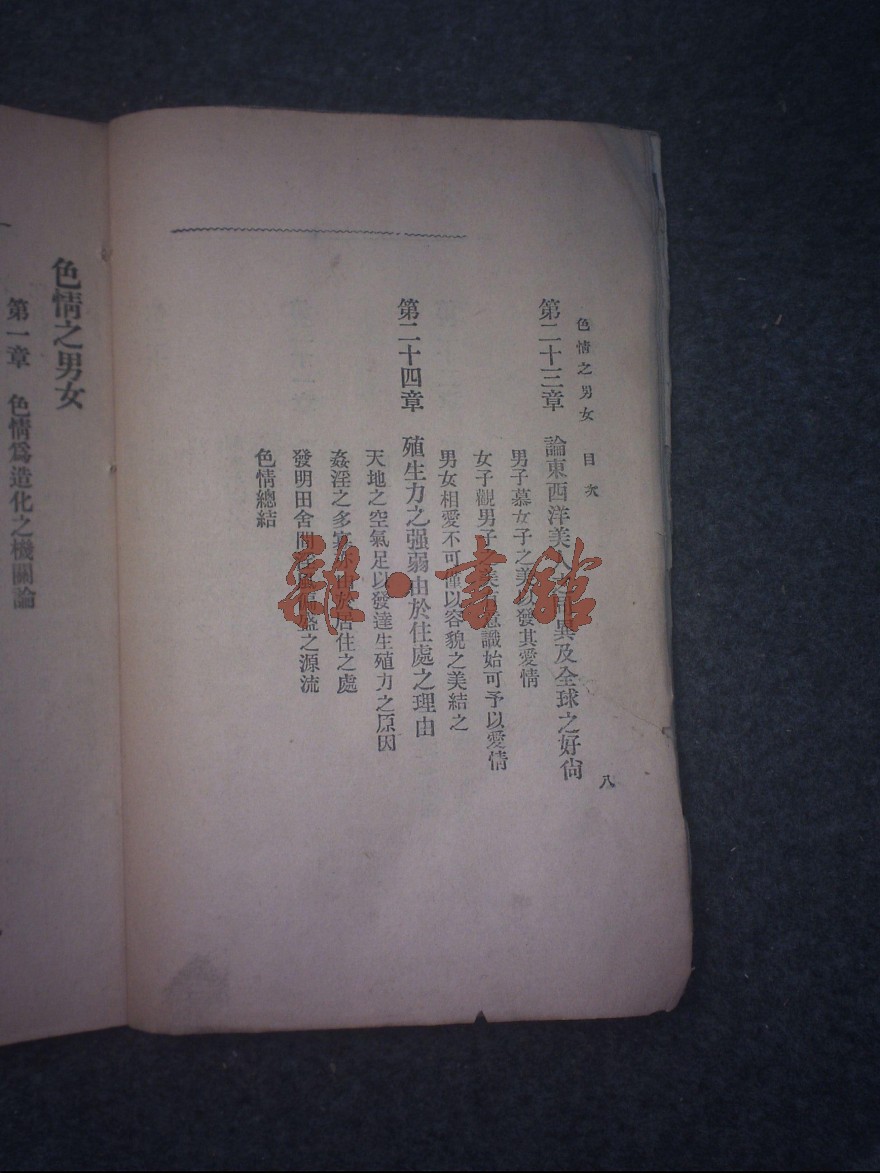 色情之男女　目次　八
第二十三章　論東西洋美人異及全球之好尙
男子慕女子之美以發其愛情
女子觀男子美意識始可予以愛情
男女相愛不可僅以容貌之美結之
第二十四章　殖生力之强弱由於住處之理由
天地之空氣足以發達生殖力之原因
姦淫之多由於居住之處
發明田舍間盛之源流
色情總結
色情之男女
第一章　色情爲造化之機關論
雜·書館